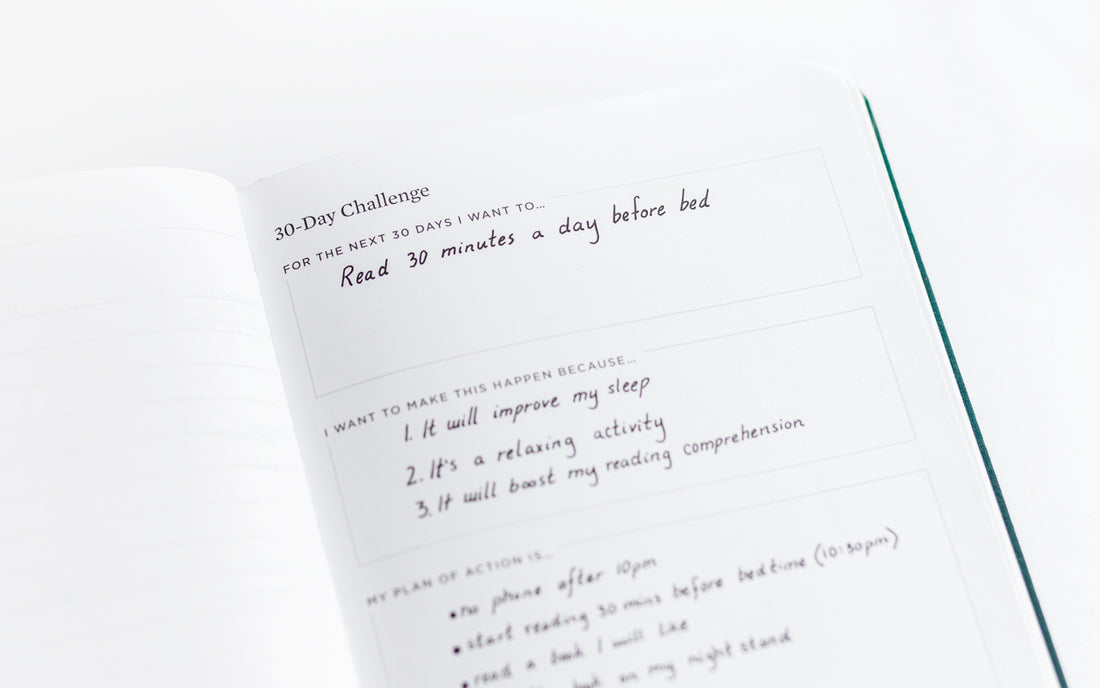 30-Day Challenge
FOR THE NEXT 30 DAYS I WANT TO...
Read 30 minutes a day before bed
I WANT TO MAKE THIS HAPPEN BECAUSE...
1. It will improve my sleep
2. It's a relaxing activity
3. It will boost my reading comprehension
MY PLAN OF ACTION IS...
•no phone after 10pm
•start reading 30 mins before bedtime (10:30pm)
•read a book I will like
on my night stand